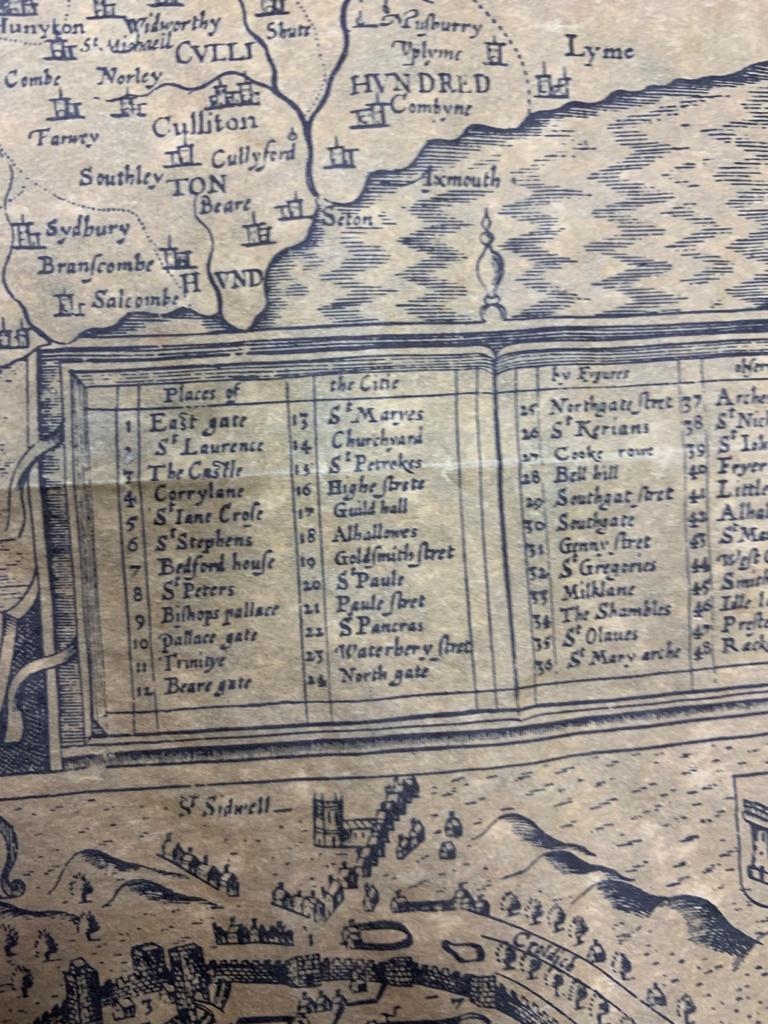 Hunyton
Widworthy
Shutt
Musburry
St. Michaell
CVLLI
Uplyme
Lyme
Combe
Norley
HVNDRED
Combyne
Farwey
Culliton
Cullyford
Southley
TON
Axmouth
Beare
Seton
Sydbury
Branscombe
H
VND
Salcombe
Places of the Citie by Figures
1 East gate
2 St Laurence
3 The Castle
4 Corrylane
5 St Iane Crose
6 St Stephens
7 Bedford house
8 St Peters
9 Bishops pallace
10 Pallace gate
11 Trinitye
12 Beare gate
13 St Maryes
14 Churchyard
15 St Petrokes
16 Highe strete
17 Guild hall
18 Alhallowes
19 Goldsmith stret
20 St Paule
21 Paule stret
22 S Pancras
23 Waterbery stret
24 North gate
25 Northgate stret
26 St Kerians
27 Cooke rowe
28 Bell hill
29 Southgat stret
30 Southgate
31 Genny stret
32 St Gregories
33 Milklane
34 The Shambles
35 St Olaues
36 St Mary arche
37 Arche
38 St Nic
39 St Ioh
40 Fryer
41 Little
42 Alhal
43 St Ma
44 West G
45 Smith
46 Idle l
47 Preste
48 Rack
St Sidwell
3